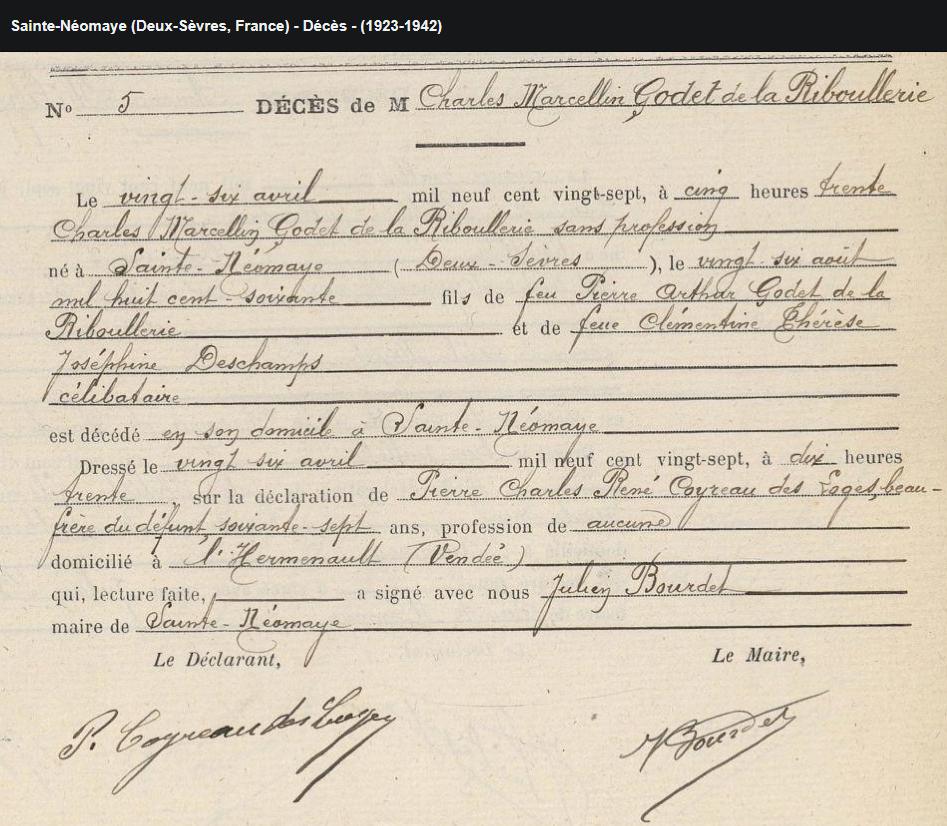 Sainte-Néomaye (Deux-Sèvres, France) - Décès - (1923-1942)
N° 5 DÉCÈS de M Charles Marcellin Godet de la Riboullerie
Le vingt-six avril mil neuf cent vingt-sept, à cinq heures trente
Charles Marcellin Godet de la Riboullerie sans profession
né à Sainte-Néomaye (Deux-Sèvres), le vingt-six août
mil huit cent-soixante fils de feu Pierre Arthur Godet de la
Riboullerie et de feue Clémentine Thérèse
Joséphine Deschamps
célibataire
est décédé en son domicile à Sainte-Néomaye
Dressé le vingt six avril mil neuf cent vingt-sept, à dix heures
trente, sur la déclaration de Pierre Charles René Coyreau des Loges, beau-
frère du défunt, soixante-sept ans, profession de aucune
domicilié à l'Hermenault (Vendée)
qui, lecture faite, a signé avec nous Julien Bourdet
maire de Sainte-Néomaye
Le Déclarant, Le Maire,
P. Coyreau des Loges Bourdet